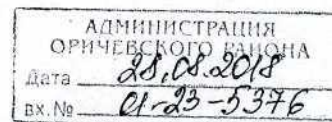 АДМИНИСТРАЦИЯ
ОРИЧЕВСКОГО РАЙОНА
Дата 28.08.2018
вх.№ 01-23-5376